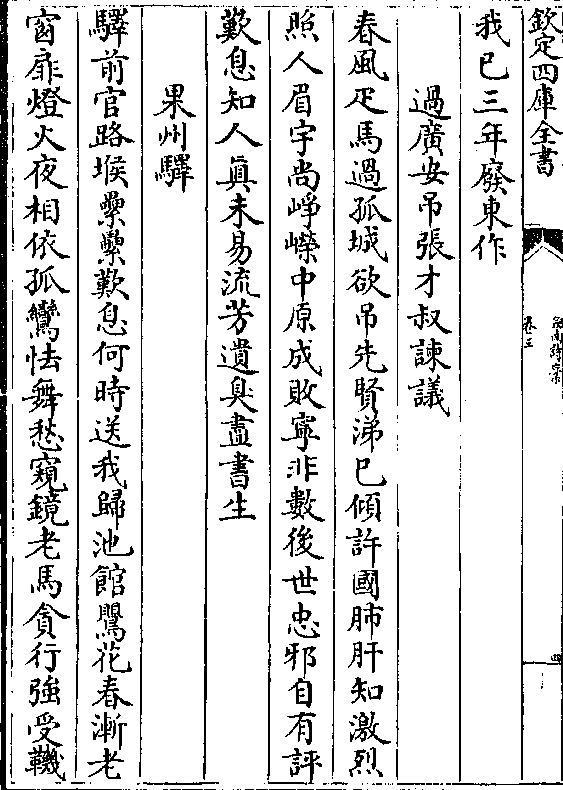 欽定四庫全書
劍南詩槀
卷三
四
我已三年廢東作
過廣安吊張才叔諫議
春風疋馬過孤城欲吊先賢涕已傾許國肺肝知激烈
照人眉宇尚崢嶸中原成敗寧非數後世忠邪自有評
歎息知人真未易流芳遺臭盡書生
果州驛
驛前官路堠纍纍歎息何時送我歸池館鸎花春漸老
窗扉燈火夜相依孤鸞怯舞愁窺鏡老馬貪行強受鞿